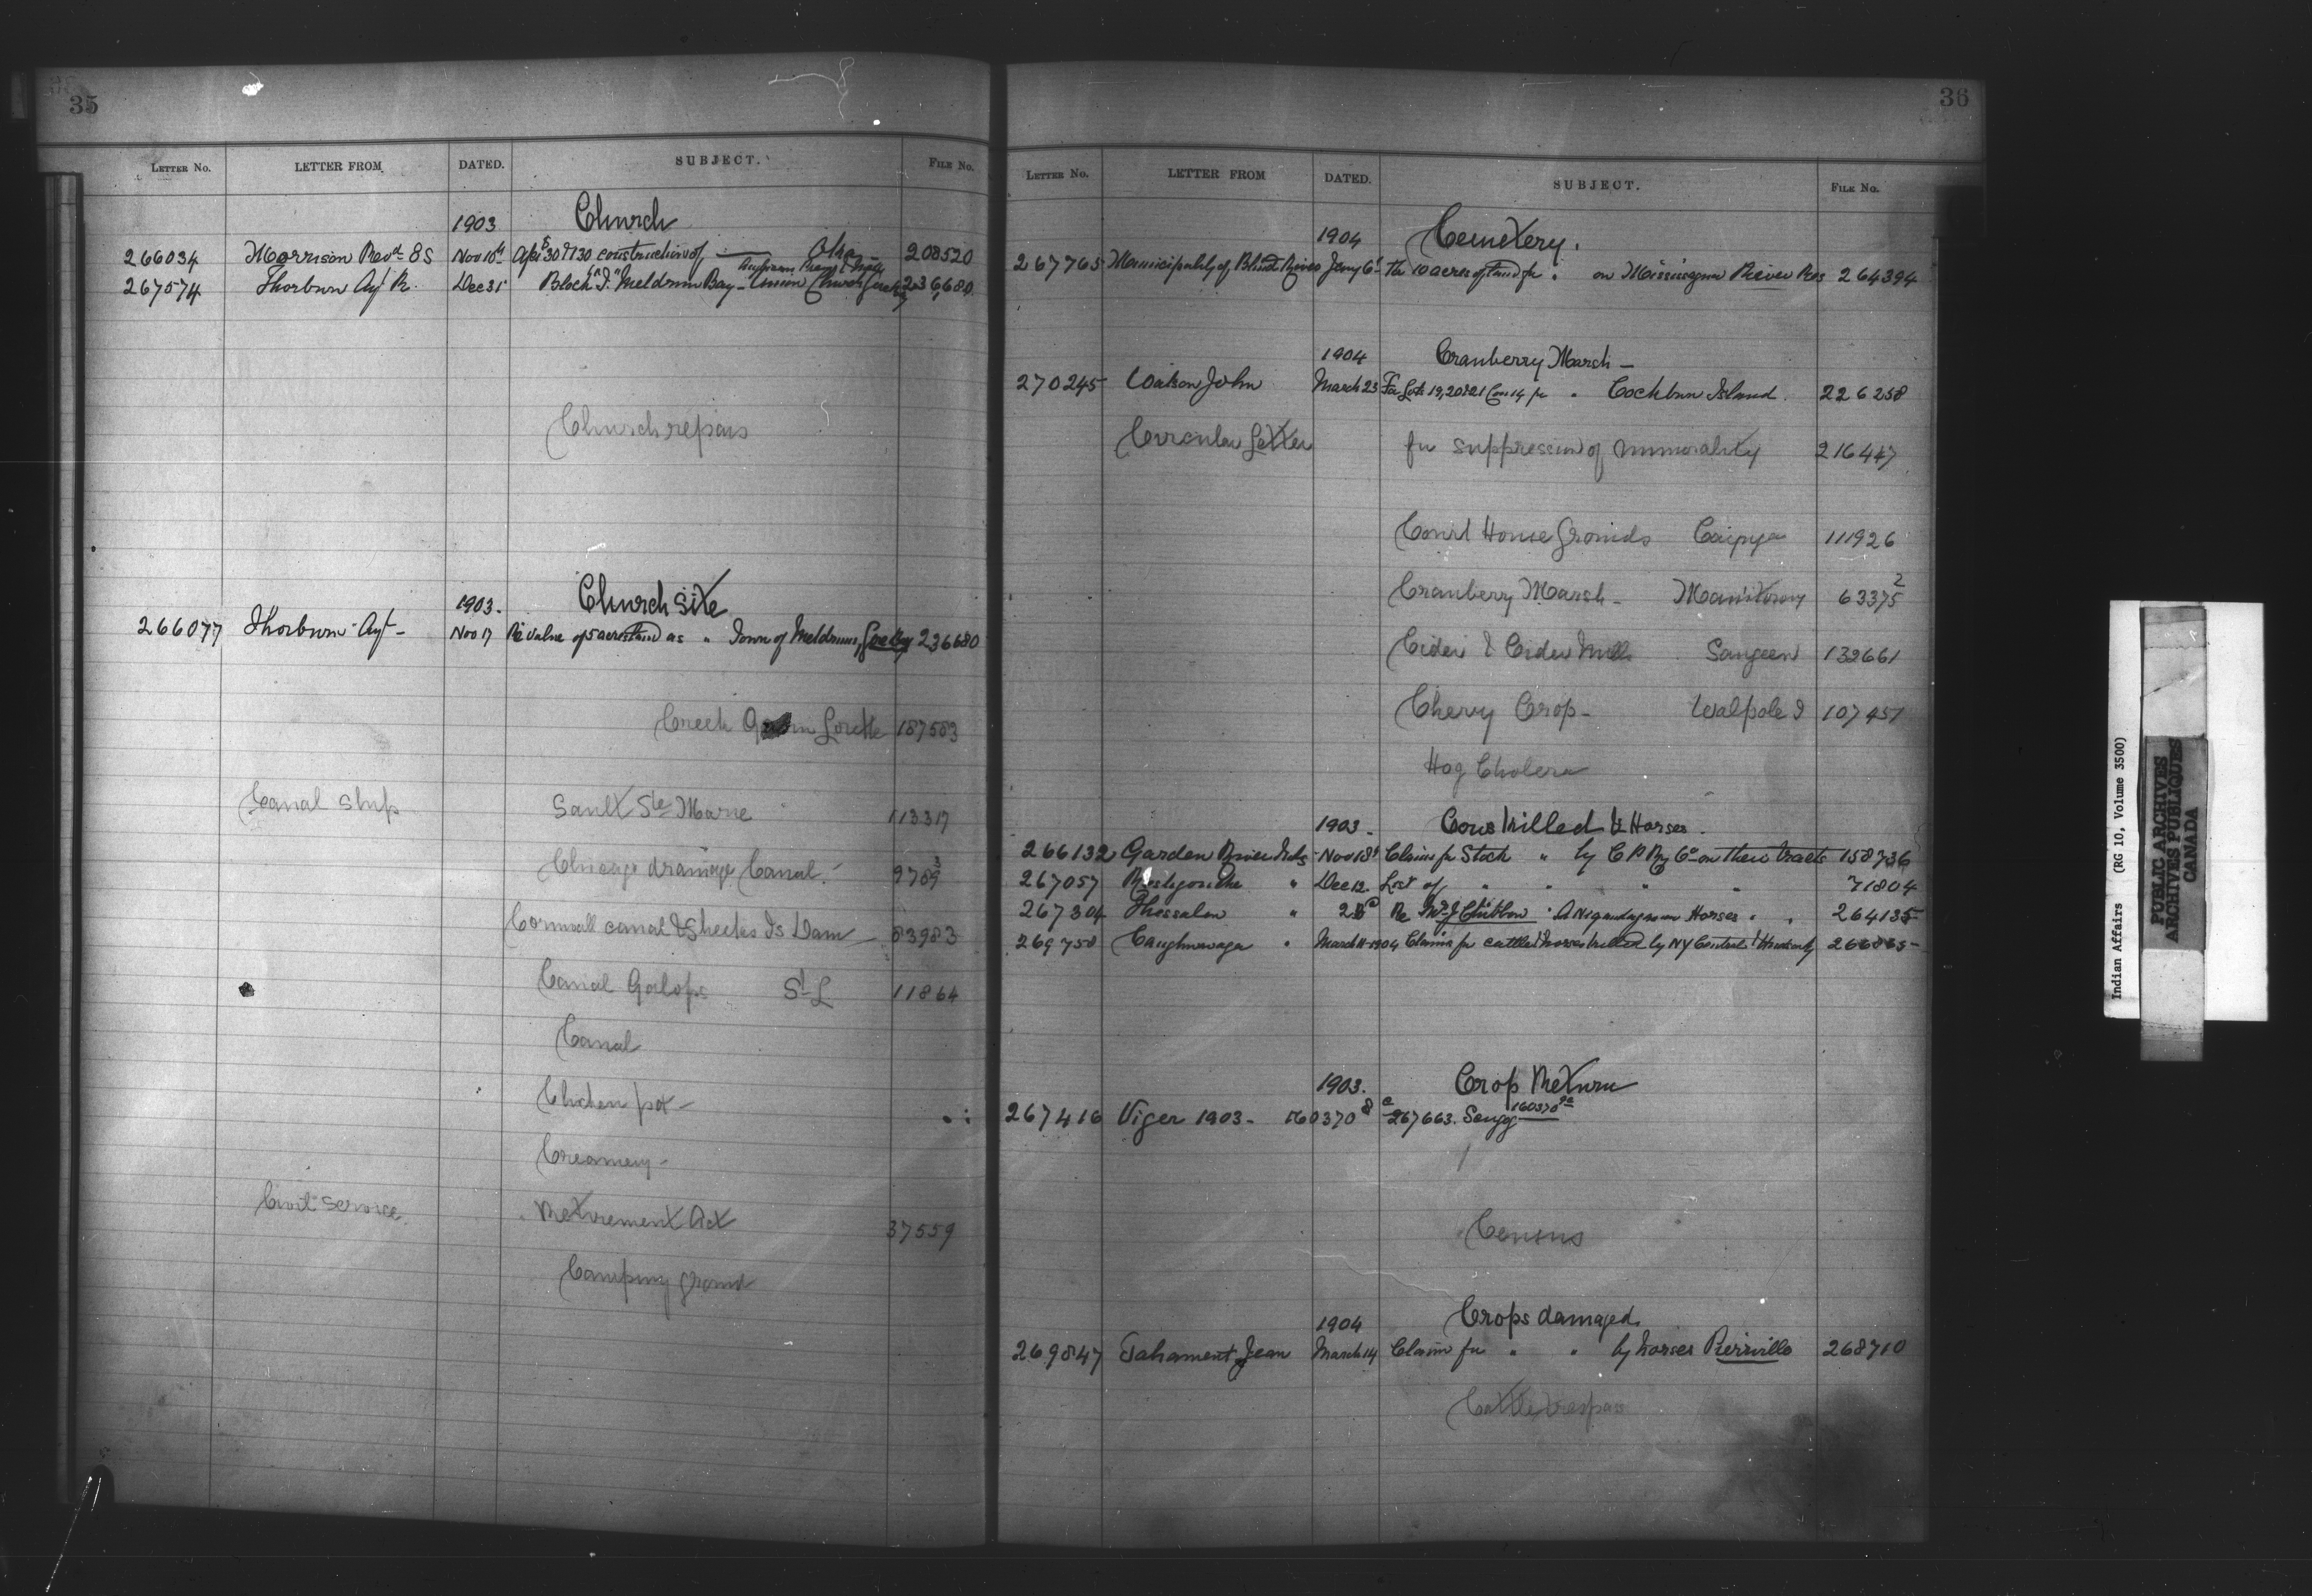 35
LETTER NO. LETTER FROM DATED. SUBJECT. FILE NO.
1903 Church
266034 Morrison Revd. Nov 16th construction of Oka 208520
267574 Thorburn Agt R. Dec 31 Block "J" Meldrum Bay - Union Church 236,680
Church repairs
1903. Church site
266077 Thorburn Agt - Nov 17 Re value of 5 acres land as " Town of Meldrum, 236680
Creek Lorette 187583
Canal Ship Sault Ste Marie 113317
Chicago drainage Canal. 9709 3
Cornwall canal & Sheeks Is Dam 83983
Canal Galops St L 11864
Canal
Chicken pox -
Creamery -
Civil Service. Retirement Act
37559
Camping ground
36
LETTER NO. LETTER FROM DATED. SUBJECT. FILE NO.
1904 Cemetery.
267765 Municipality of Blind River Jany 6th The 10 acres of land for " on Mississagua River Res 264394
1904 Cranberry Marsh -
270245 Watson John March 23 For Lots 19, 20 & 21 Con 14 for " Cockburn Island. 226258
Circular Letter for suppression of immorality 216447
Court House Grounds Cayuga 111926
Cranberry Marsh - Manitowaning 63375 2
Cider & Cider Mills Saugeen 132661
Cherry Crop - Walpole I 107451
Hog Cholera
1903. Cows killed & Horses.
266132 Garden River Inds Nov 18th Claim for Stock " by C P Ry Co on their tracts 158736
267057 Restigouche " Dec 12. List of " " " " 71804
267304 Thessalon " Re Horses " " 264135
269758 Caughnawaga " March 11-1904 Claims for cattle & horses killed by NY Central & 266865
1903. Crop Return
267416 Viger 1903 - 160370 8 267663. 160370
Census
1904 Crops damaged.
269847 Tahament Jean March 14 Claim for " " by horses Pierreville 268710
Cattle trespass
Indian Affairs (RG 10, Volume 3500)
PUBLIC ARCHIVES
ARCHIVES PUBLIQUES
CANADA